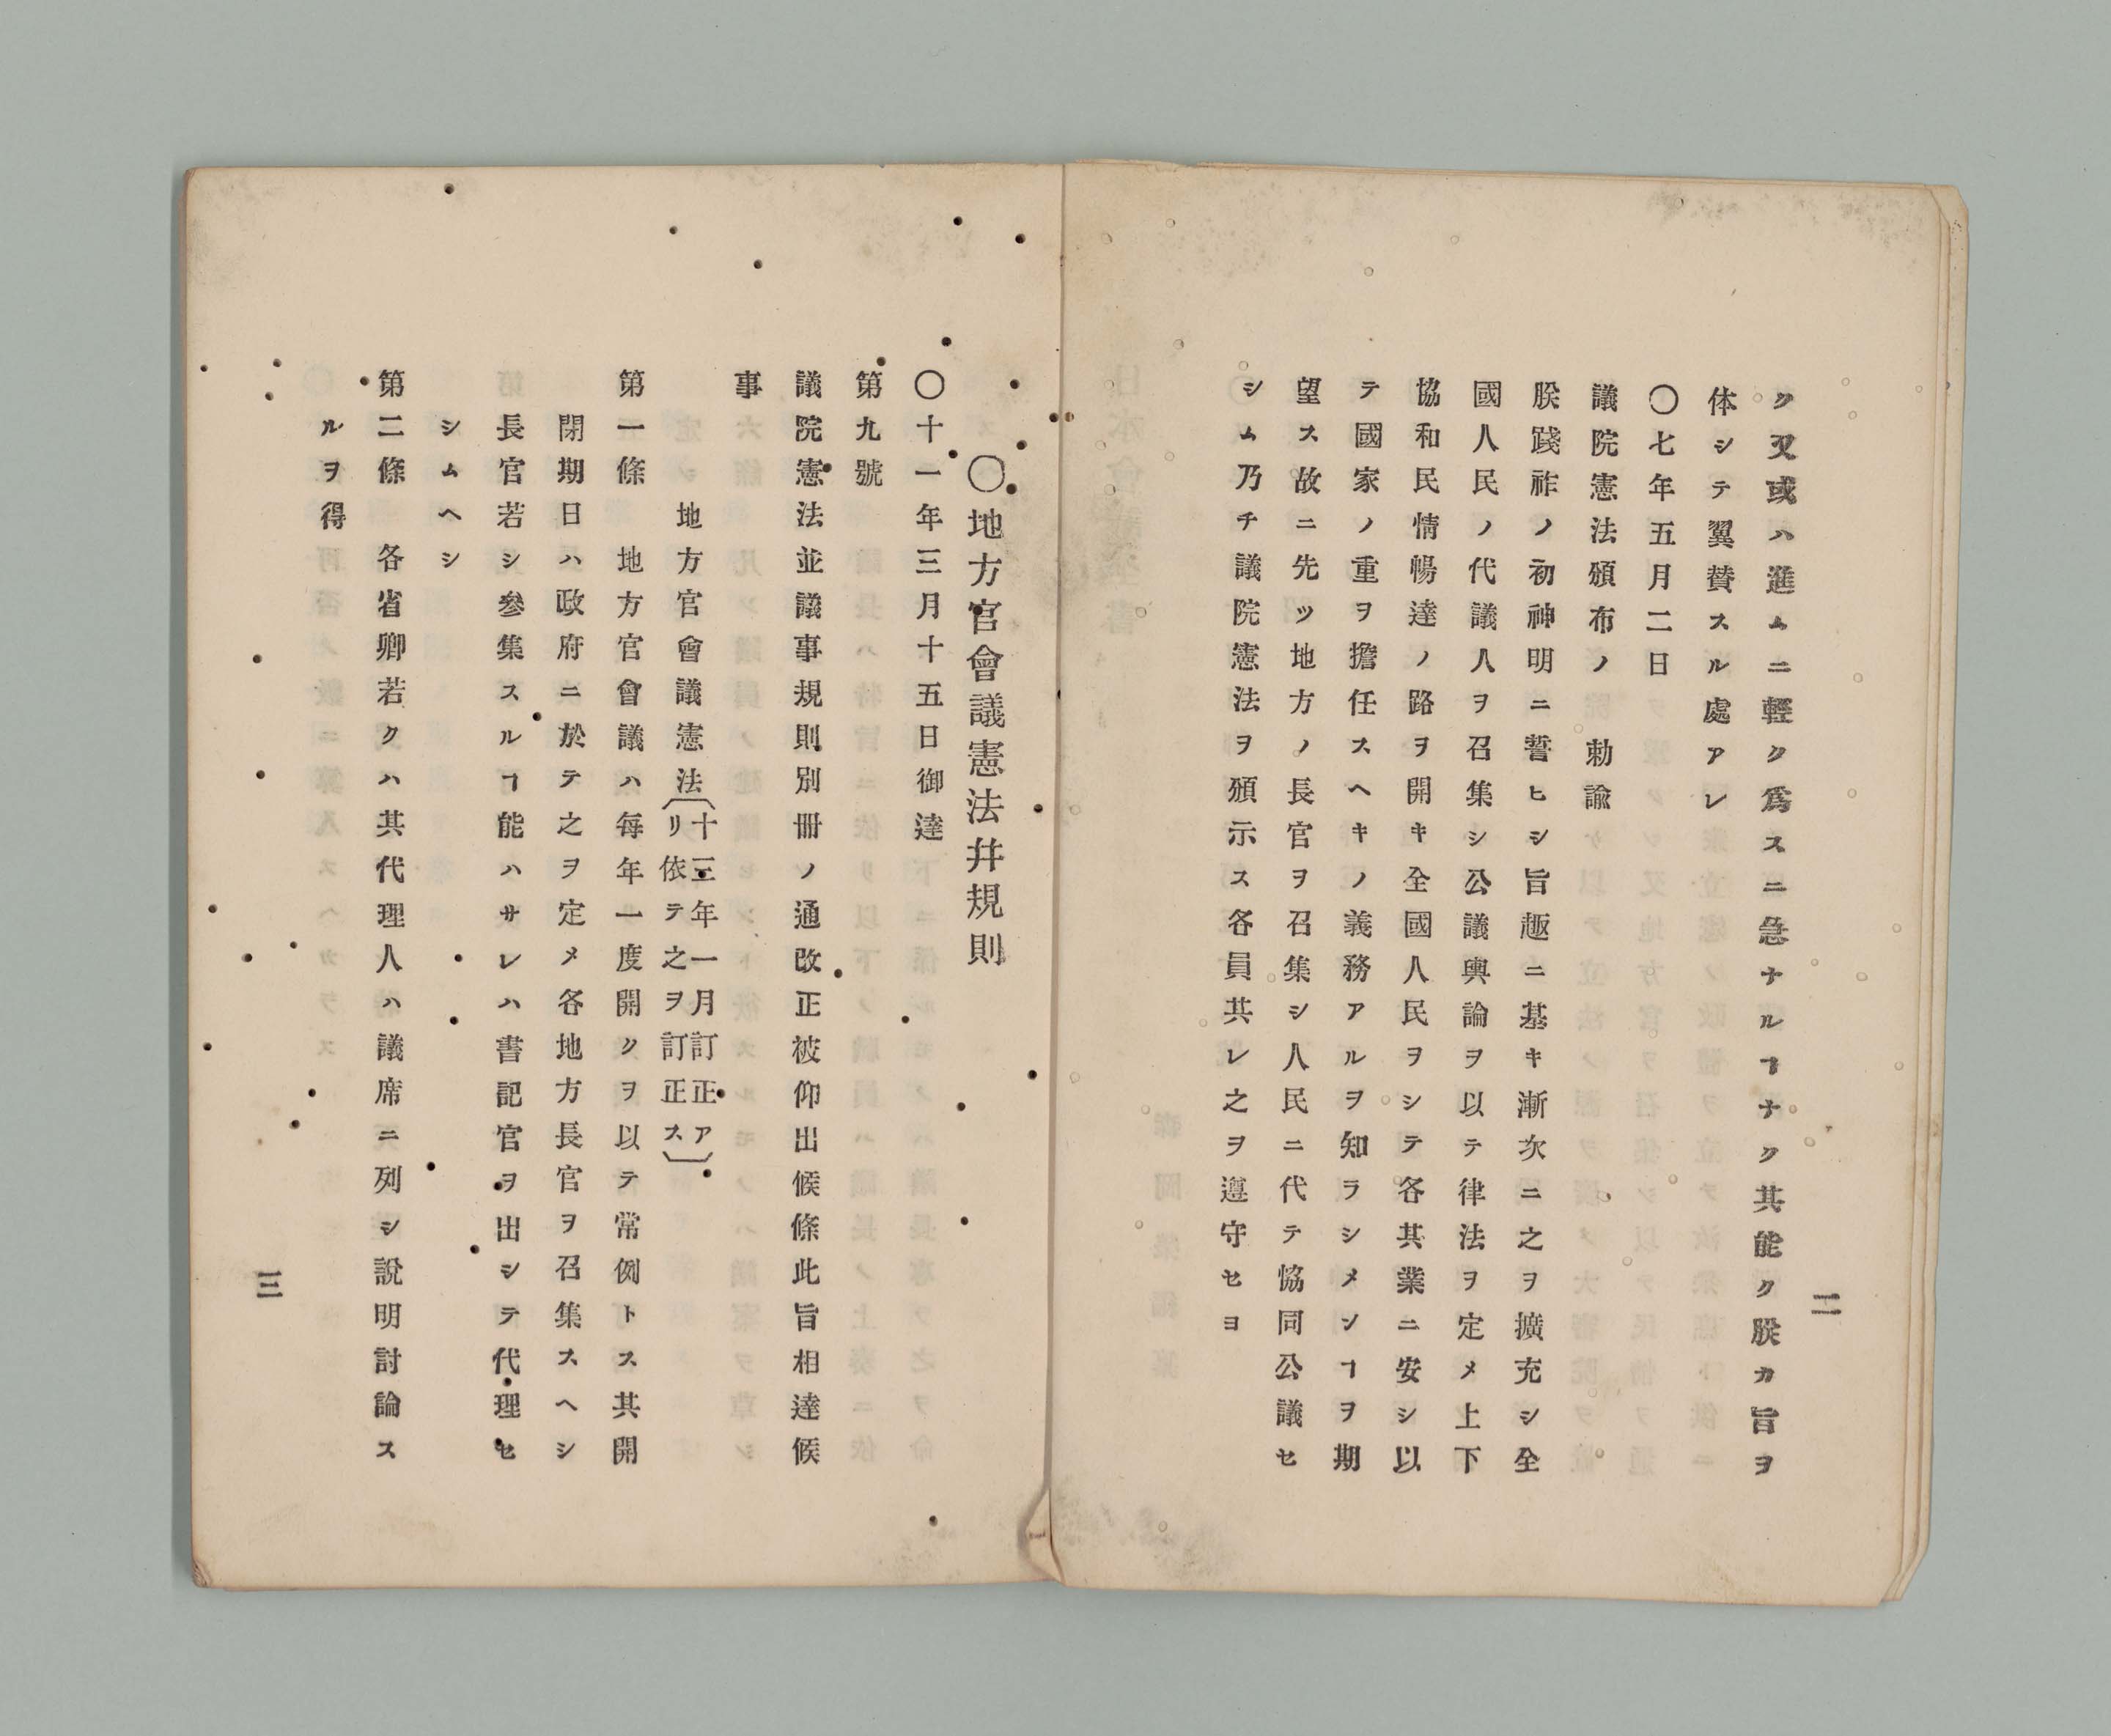 二
ク又或ハ進ムニ輕ク爲スニ急ナルヿナク其能ク朕カ旨ヲ
体シテ翼賛スル處アレ
〇七年五月二日
議院憲法頒布ノ　勅諭
朕踐祚ノ初神明ニ誓ヒシ旨趣ニ基キ漸次ニ之ヲ擴充シ全
國人民ノ代議人ヲ召集シ公議輿論ヲ以テ律法ヲ定メ上下
協和民情暢達ノ路ヲ開キ全國人民ヲシテ各其業ニ安シ以
テ國家ノ重ヲ擔任スヘキノ義務アルヲ知ラシメンヿヲ期
望ス故ニ先ツ地方ノ長官ヲ召集シ人民ニ代テ恊同公議セ
シム乃チ議院憲法ヲ頒示ス各員共レ之ヲ遵守セヨ
〇地方官會議憲法幷規則
〇十一年三月十五日御達
第九號
議院憲法並議事規則別冊ノ通改正被仰出候條此旨相達候
事
地方官會議憲法〔十三年一月訂正ア
リ依テ之ヲ訂正ス〕
第一條　地方官會議ハ毎年一度開クヲ以テ常例トス其開
閉期日ハ政府ニ於テ之ヲ定メ各地方長官ヲ召集スヘシ
長官若シ參集スルヿ能ハサレハ書記官ヲ出シテ代理セ
シムヘシ
第二條　各省卿若クハ其代理人ハ議席ニ列シ說明討論ス
ルヲ得
三